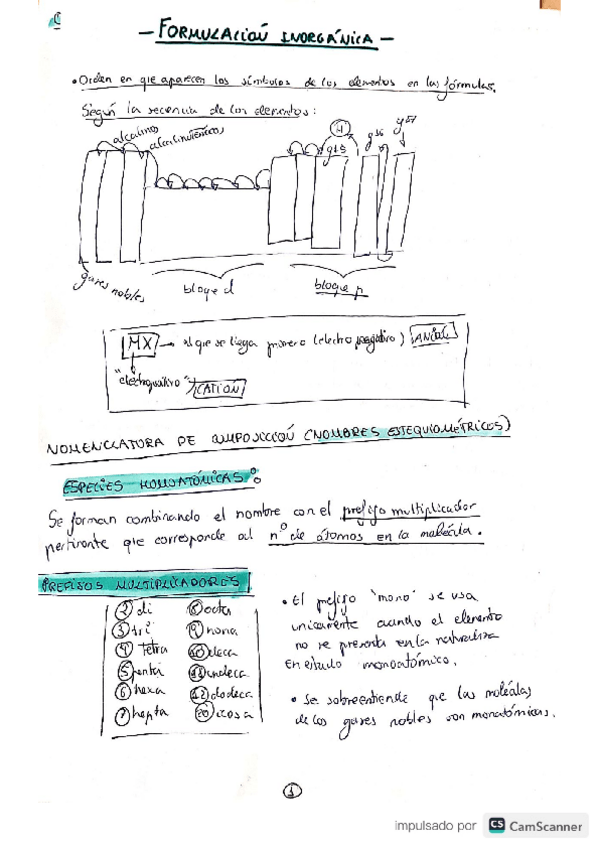 - FORMULACIÓN INORGÁNICA -
• Orden en que aparecen los símbolos de los elementos en las fórmulas.
Según la secencia de los elementos:
alcalinos
alcalinotérreos
H
g15
g16
g17
gases nobles
bloque d
bloque p
MX → al que se llega primero (electronegativo) ANIÓN
"electropositivo" CATIÓN
NOMENCLATURA DE COMPOSICIÓN (NOMBRES ESTEQUIOMÉTRICOS)
ESPECIES HOMOATÓMICAS:
Se forman combinando el nombre con el prefijo multiplicador
pertinente que corresponde al nº de átomos en la molécula.
PREFIJOS MULTIPLICADORES
② di ⑧ octa
③ tri ⑨ nona
④ tetra ⑩ deca
⑤ penta ⑪ undeca
⑥ hexa ⑫ dodeca
⑦ hepta ⑳ icosa
• El prefijo "mono" se usa
unicamente cuando el elemento
no se presenta en la naturaleza
en estado monoatómico.
• Se sobreentiende que las moléculas
de los gases nobles son monatómicas.
①
impulsado por CS CamScanner